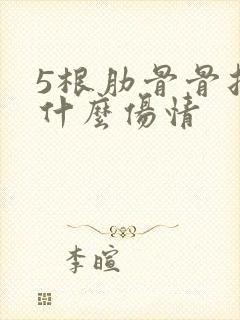 5根肋骨骨
什麼傷情
李暄